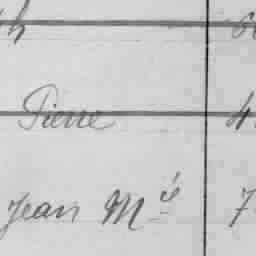 Pierre 4
Jean Mie 7